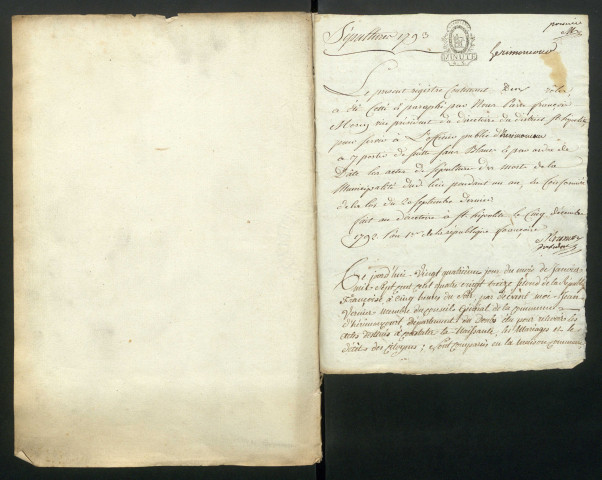 Sépultures 1793
première
MINUTE
hérimoncourt
Le présent registre contenant deux rôles
a été cotté et paraphé par Nous
président du directoire du district St hipolite
pour servir à L'officier public d'hérimoncourt
à y porter de suite sans Blanc et par ordre de
Date les actes de Sépulture des morts de la
Municipalité dud. lieu pendant un an, en Conformité
de la loi du 20 Septembre dernier
fait au directoire à St hipolite le Cinq décembre
1792 l'an 1er de la république françoise
président
Ce jourd'hui vingt quatrième jour du mois de Janvier
mil Sept cent quatre vingt treize second de la République
Françoise, à cinq heures du soir, par devant moi Jean
Vernier membre du conseil général de la commune
d'hérimoncourt département du Doubs élu pour recevoir les
actes destinés à constater la Naissance, les Mariages et le
décès des Citoyens ; est comparu en la maison commune